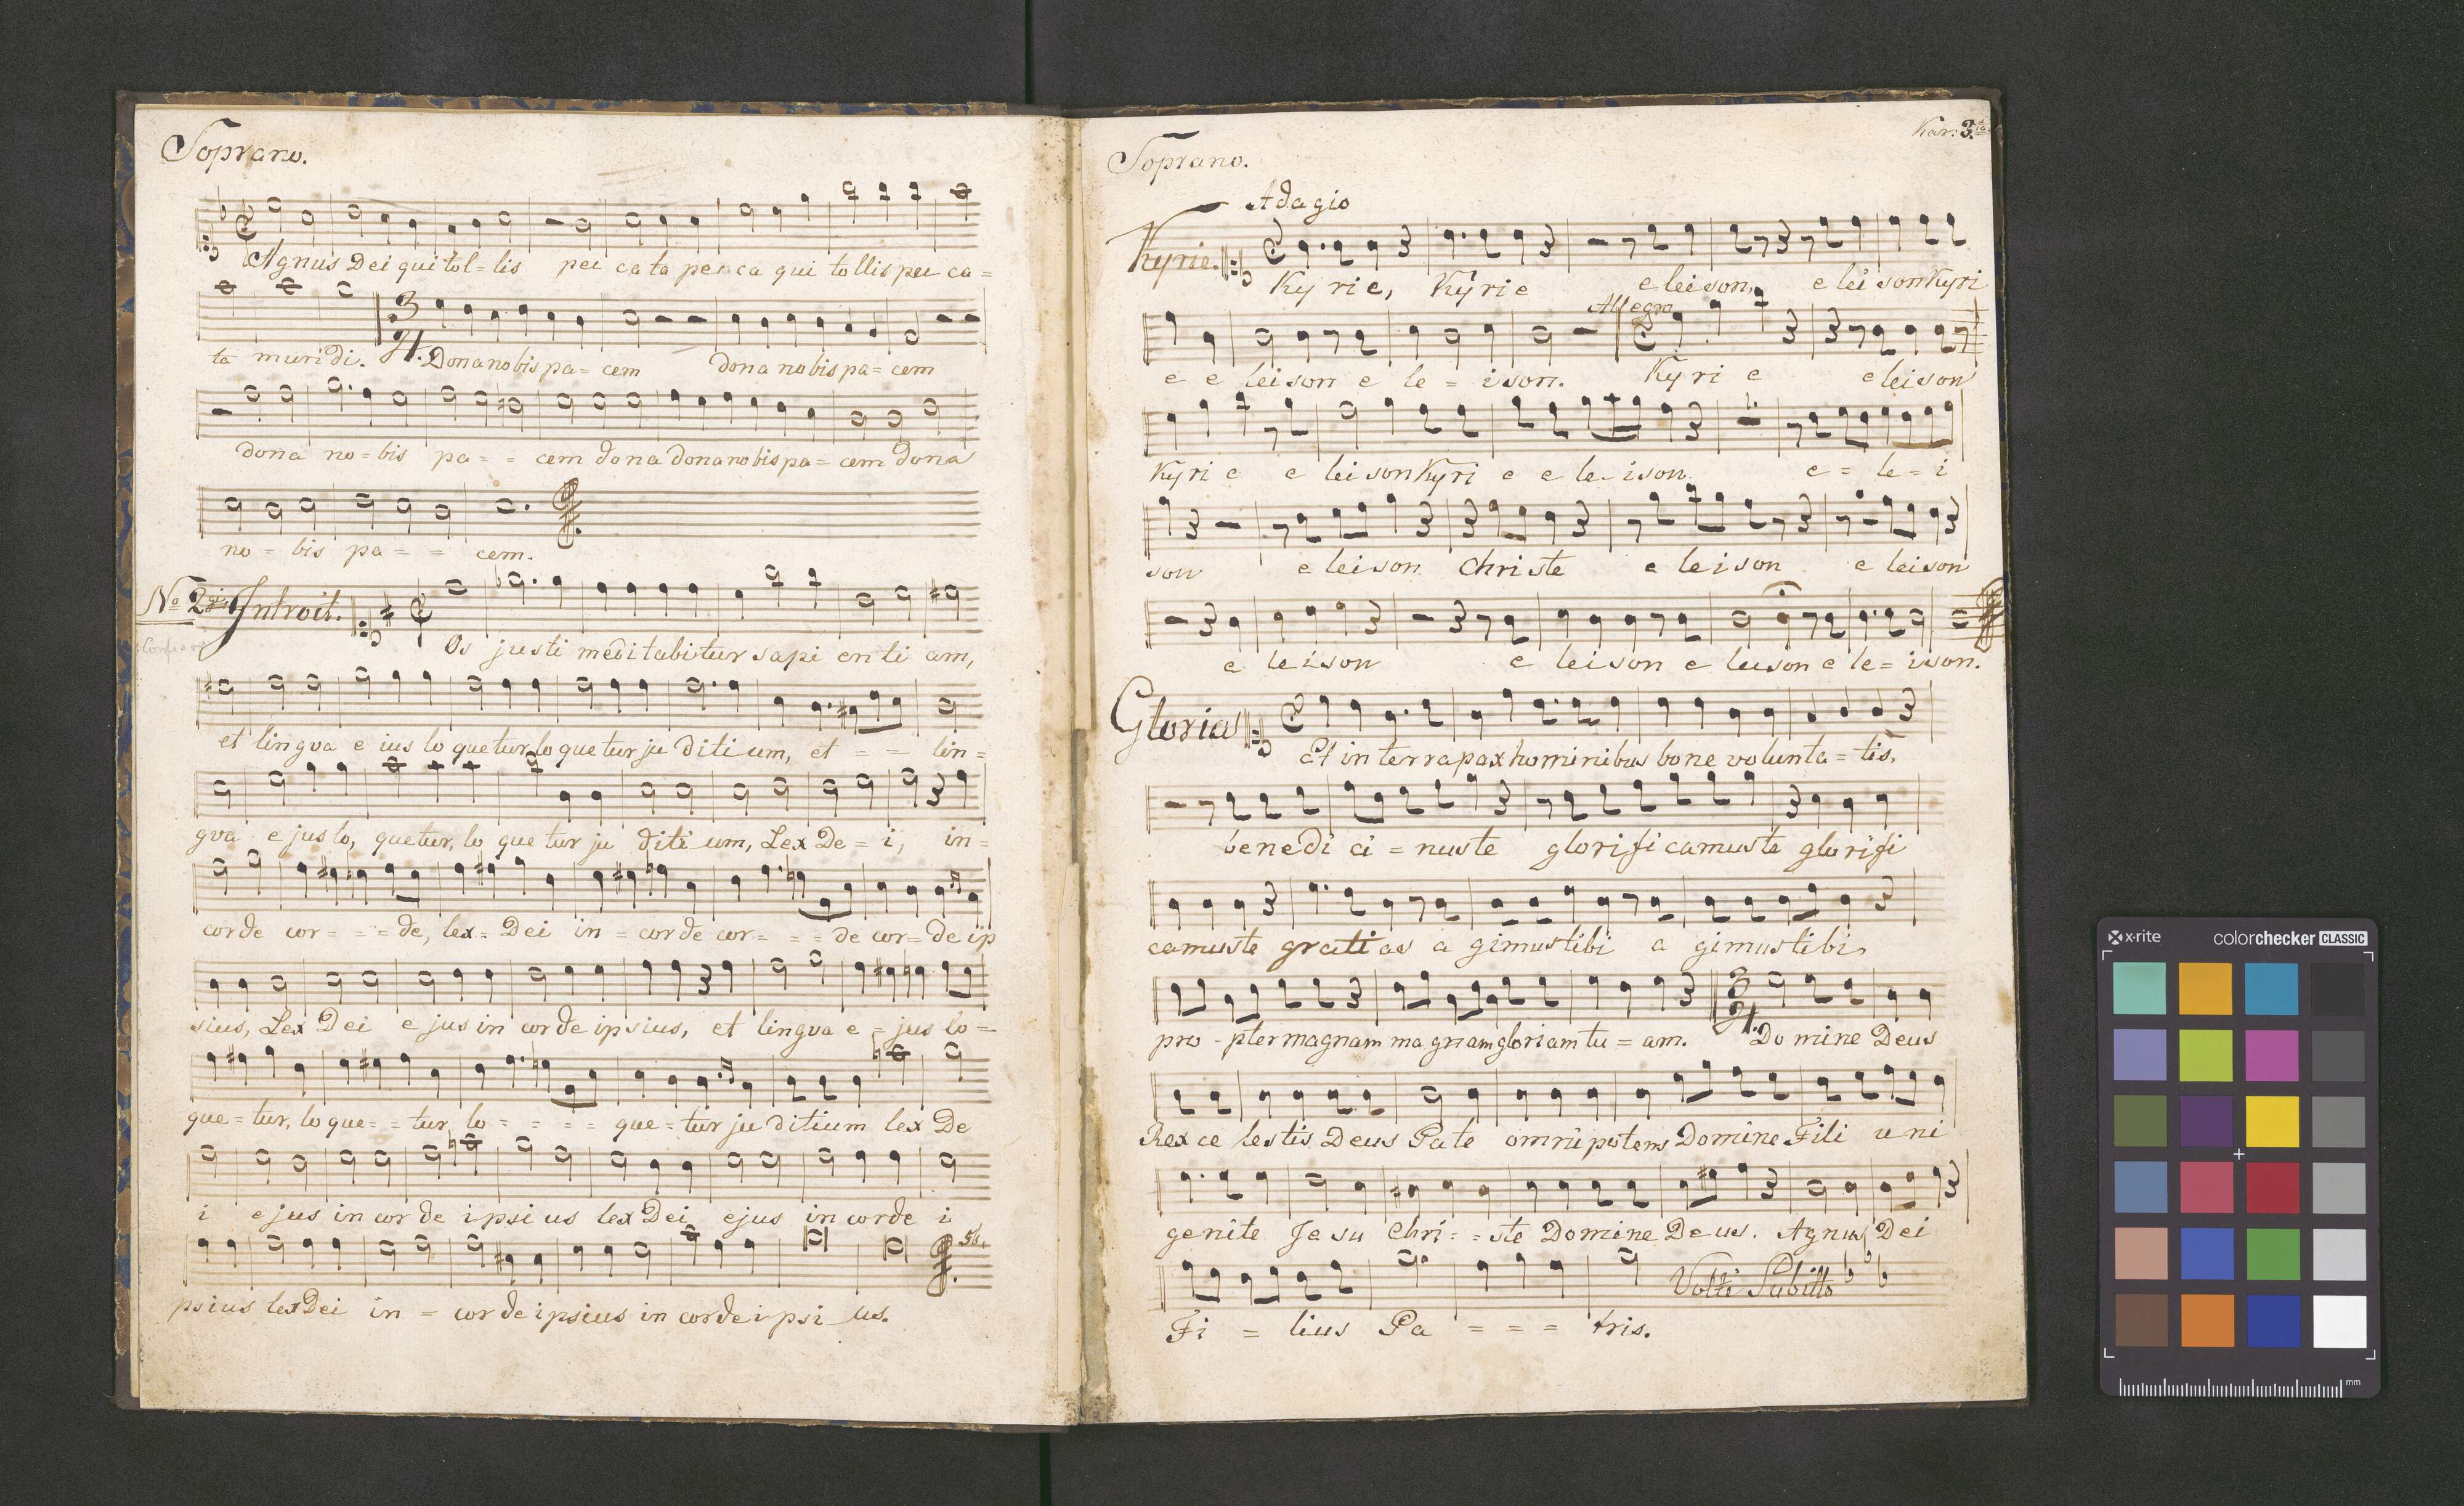 Soprano.
Agnus Dei qui tol = lis pec cata pec ca qui tollis pec ca =
ta mundi. Dona nobis pa = cem dona nobis pa = cem
dona no = bis pa = = cem dona dona nobis pa = cem dona
no = bis pa = = cem.
No 2 Introit. Os justi meditabitur sapi enti am,
et lingva e ius lo quetur lo quetur ju diti um, et = = lin =
gva e jus lo, quetur, lo que tur ju diti um, Lex De = i, in =
corde cor = = = de, lex = Dei in = corde cor = = = de cor = de ip
sius, Lex Dei e jus in corde ipsius, et lingva e = jus lo =
que = tur, lo que = = tur lo = = = = que = tur ju ditium lex De
i ejus in corde ipsi us lex Dei ejus in corde i
psius lex Dei in = corde ipsius in corde i psi us.
Kar: 3
Soprano.
Adagio
Kyrie. Ky rie, Kyrie e leison, e lei son Kyri
Allegro
e e leison e le = ison. Ky ri e e leison
Kyri e e leison Kyri e e le = ison. e = le = i
son e leison Christe e leison e leison
e leison e leison e leison e le = ison.
Gloria Et in terra pax hominibus bone volunta = tis,
benedi ci = muste glorifi camuste glorifi
camuste grati as a gimustibi a gimustibi,
pro - pter magnam magnam gloriam tu = am. Do mine Deus
Rex ce lestis Deus Pate omnipotens Domine Fili uni
genite Jesu Chri = = ste Domine Deus. Agnus Dei
Volti Subitto
Fi = lius Pa = = = tris.
x-rite
colorchecker CLASSIC
mm